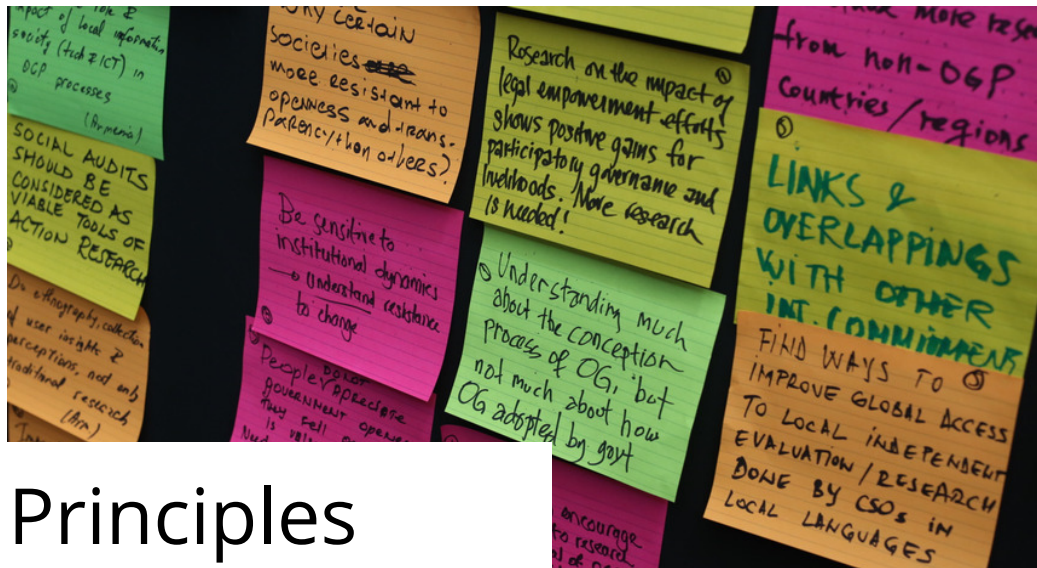 impact of local information
society (tech & ICT) in
OGP processes
(Armenia)
SOCIAL AUDITS
SHOULD BE
CONSIDERED AS
VIABLE TOOLS OF
ACTION RESEARCH
Do ethnography, collection
user insights &
perceptions, not only
traditional research
(Arm)
WHY CERTAIN
societies
more resistant to
openness and trans-
parency/than others?
Be sensitive to
institutional dynamics
→ Understand resistance
to change
People DO NOT APPRECIATE
GOVERNMENT
they
is
Research on the impact of
legal empowerment efforts
shows positive gains for
participatory governance and
livelihoods. More research
is needed!
Understanding much
about the conception
process of OG, but
not much about how
OG adopted by govt
encourage
to research
more rese
from non-OGP
Countries/regions
LINKS &
OVERLAPPINGS
WITH OTHER
INT. COMMITMENTS
FIND WAYS TO
IMPROVE GLOBAL ACCESS
TO LOCAL INDEPENDENT
EVALUATION/RESEARCH
DONE BY CSOs IN
LOCAL LANGUAGES
Principles